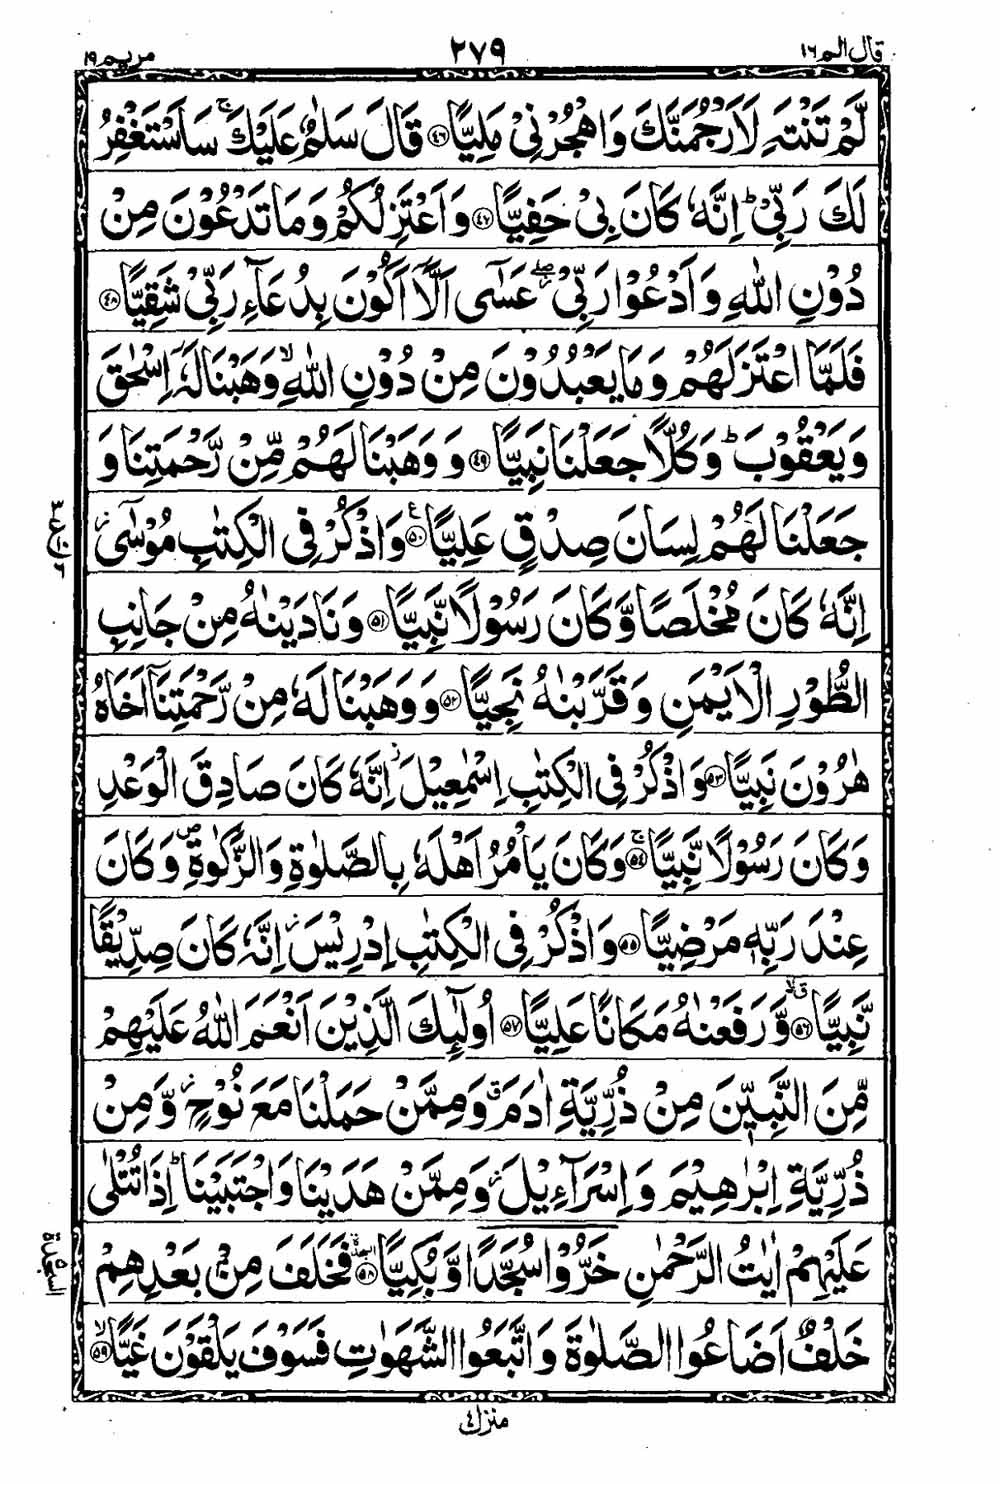 قال الم ١٦ ٢٧٩ مريم ١٩
لَّمْ تَنْتَهِ لَاَرْجُمَنَّكَ وَاهْجُرْنِىْ مَلِيًّا ﴿٤٦﴾ قَالَ سَلٰمٌ عَلَيْكَ ۚ سَاَسْتَغْفِرُ
لَكَ رَبِّىْ ؕ اِنَّهٗ كَانَ بِىْ حَفِيًّا ﴿٤٧﴾ وَاَعْتَزِلُكُمْ وَمَا تَدْعُوْنَ مِنْ
دُوْنِ اللّٰهِ وَاَدْعُوْا رَبِّىْ ۖ عَسٰٓى اَلَّاۤ اَكُوْنَ بِدُعَآءِ رَبِّىْ شَقِيًّا ﴿٤٨﴾
فَلَمَّا اعْتَزَلَهُمْ وَمَا يَعْبُدُوْنَ مِنْ دُوْنِ اللّٰهِ ۙ وَهَبْنَا لَهٗۤ اِسْحٰقَ
وَيَعْقُوْبَ ؕ وَكُلًّا جَعَلْنَا نَبِيًّا ﴿٤٩﴾ وَوَهَبْنَا لَهُمْ مِّنْ رَّحْمَتِنَا وَ
جَعَلْنَا لَهُمْ لِسَانَ صِدْقٍ عَلِيًّا ﴿٥٠﴾ وَاذْكُرْ فِى الْكِتٰبِ مُوْسٰٓى ز
اِنَّهٗ كَانَ مُخْلَصًا وَّكَانَ رَسُوْلًا نَّبِيًّا ﴿٥١﴾ وَنَادَيْنٰهُ مِنْ جَانِبِ
الطُّوْرِ الْاَيْمَنِ وَقَرَّبْنٰهُ نَجِيًّا ﴿٥٢﴾ وَوَهَبْنَا لَهٗ مِنْ رَّحْمَتِنَاۤ اَخَاهُ
هٰرُوْنَ نَبِيًّا ﴿٥٣﴾ وَاذْكُرْ فِى الْكِتٰبِ اِسْمٰعِيْلَ ز اِنَّهٗ كَانَ صَادِقَ الْوَعْدِ
وَكَانَ رَسُوْلًا نَّبِيًّا ﴿٥٤﴾ ۚ وَكَانَ يَاْمُرُ اَهْلَهٗ بِالصَّلٰوةِ وَالزَّكٰوةِ ص وَكَانَ
عِنْدَ رَبِّهٖ مَرْضِيًّا ﴿٥٥﴾ وَاذْكُرْ فِى الْكِتٰبِ اِدْرِيْسَ ز اِنَّهٗ كَانَ صِدِّيْقًا
نَّبِيًّا ﴿٥٦﴾ ق لا وَّرَفَعْنٰهُ مَكَانًا عَلِيًّا ﴿٥٧﴾ اُولٰٓئِكَ الَّذِيْنَ اَنْعَمَ اللّٰهُ عَلَيْهِمْ
مِّنَ النَّبِيّٖنَ مِنْ ذُرِّيَّةِ اٰدَمَ ق وَمِمَّنْ حَمَلْنَا مَعَ نُوْحٍ ز وَّمِنْ
ذُرِّيَّةِ اِبْرٰهِيْمَ وَاِسْرَآءِيْلَ ز وَمِمَّنْ هَدَيْنَا وَاجْتَبَيْنَا ؕ اِذَا تُتْلٰى
عَلَيْهِمْ اٰيٰتُ الرَّحْمٰنِ خَرُّوْا سُجَّدًا وَّبُكِيًّا ﴿٥٨﴾ السجدة فَخَلَفَ مِنْۢ بَعْدِهِمْ
خَلْفٌ اَضَاعُوا الصَّلٰوةَ وَاتَّبَعُوا الشَّهَوٰتِ فَسَوْفَ يَلْقَوْنَ غَيًّا ﴿٥٩﴾ ۙ
السجدة
منزل ٤